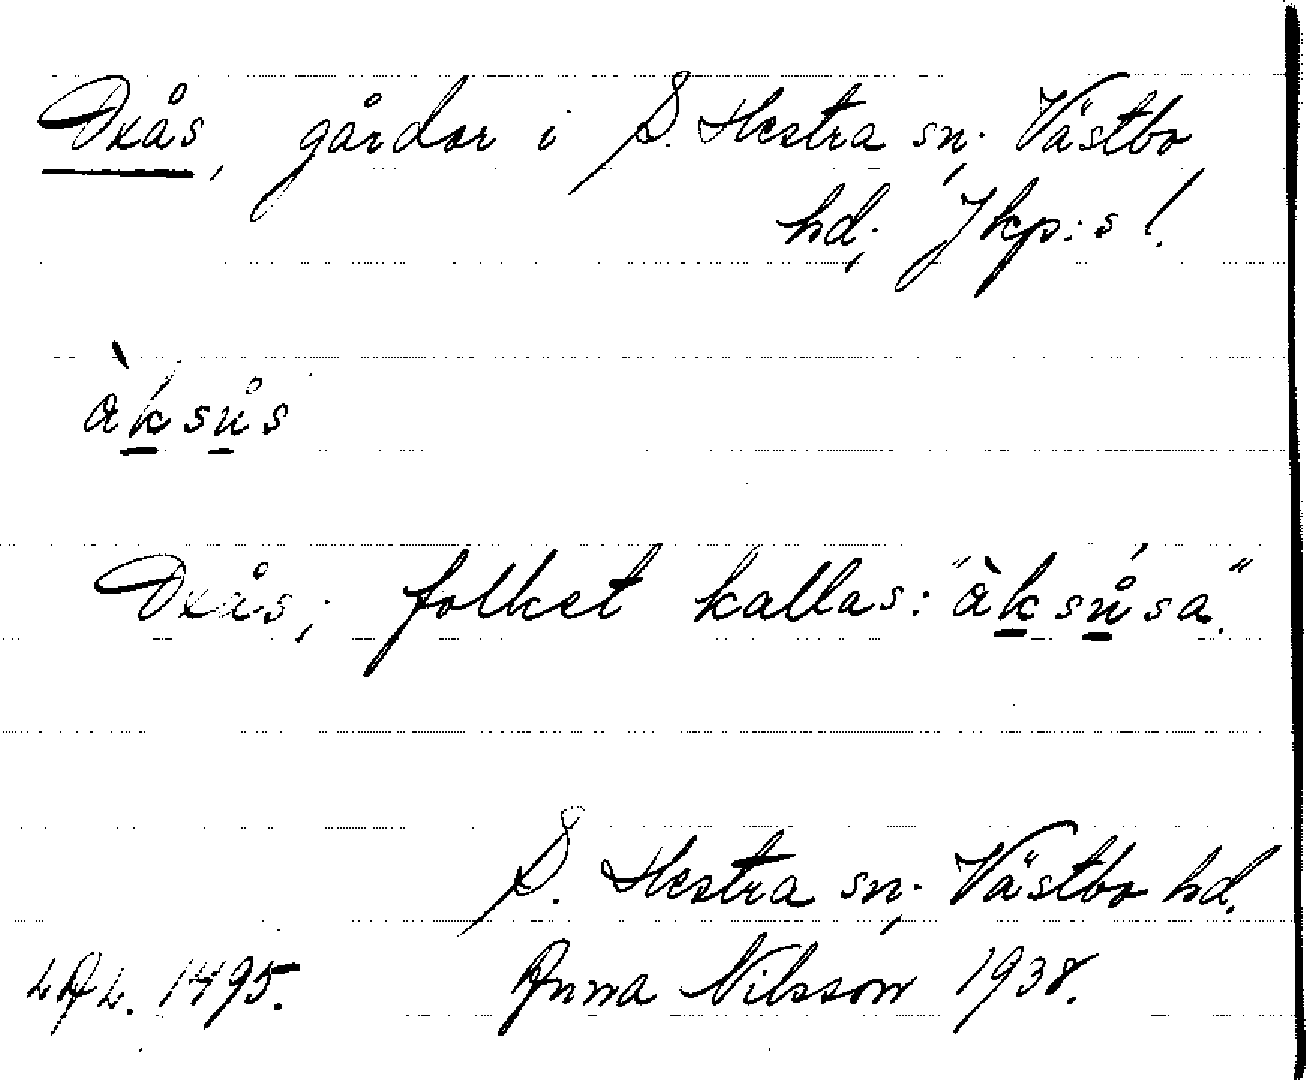 Oxås, gårdar i S. Hestra sn; Västbo
hd; Jkp:s l.
àksůs
Oxås; folket kallas: "àksůsa."
S. Hestra sn; Västbo hd.
LAL. 1495. Anna Nilsson 1938.